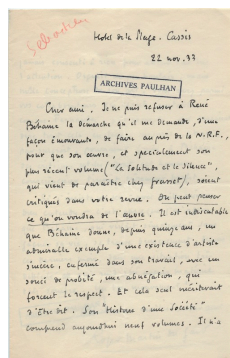 Hotel de la Plage. Cassis
22 nov. 33
ARCHIVES PAULHAN
Cher ami, Je ne puis refuser à René
Béhaine la démarche qu'il me demande, d'une
façon émouvante, de faire auprès de la N.R.F.,
pour que son œuvre, et spécialement son
plus récent volume ("La Solitude et le Silence",
qui vient de paraître chez Grasset), soient
critiqués dans votre revue. On peut penser
ce qu'on voudra de l'œuvre. Il est indiscutable
que Béhaine donne, depuis quinze ans, un
admirable exemple d'une existence d'artiste
sincère, enfermé dans son travail, avec un
souci de probité, une abnégation, qui
forcent le respect. Et cela seul mériterait
d'être dit. Son "Histoire d'une Société"
comprend aujourd'hui neuf volumes. Il n'a